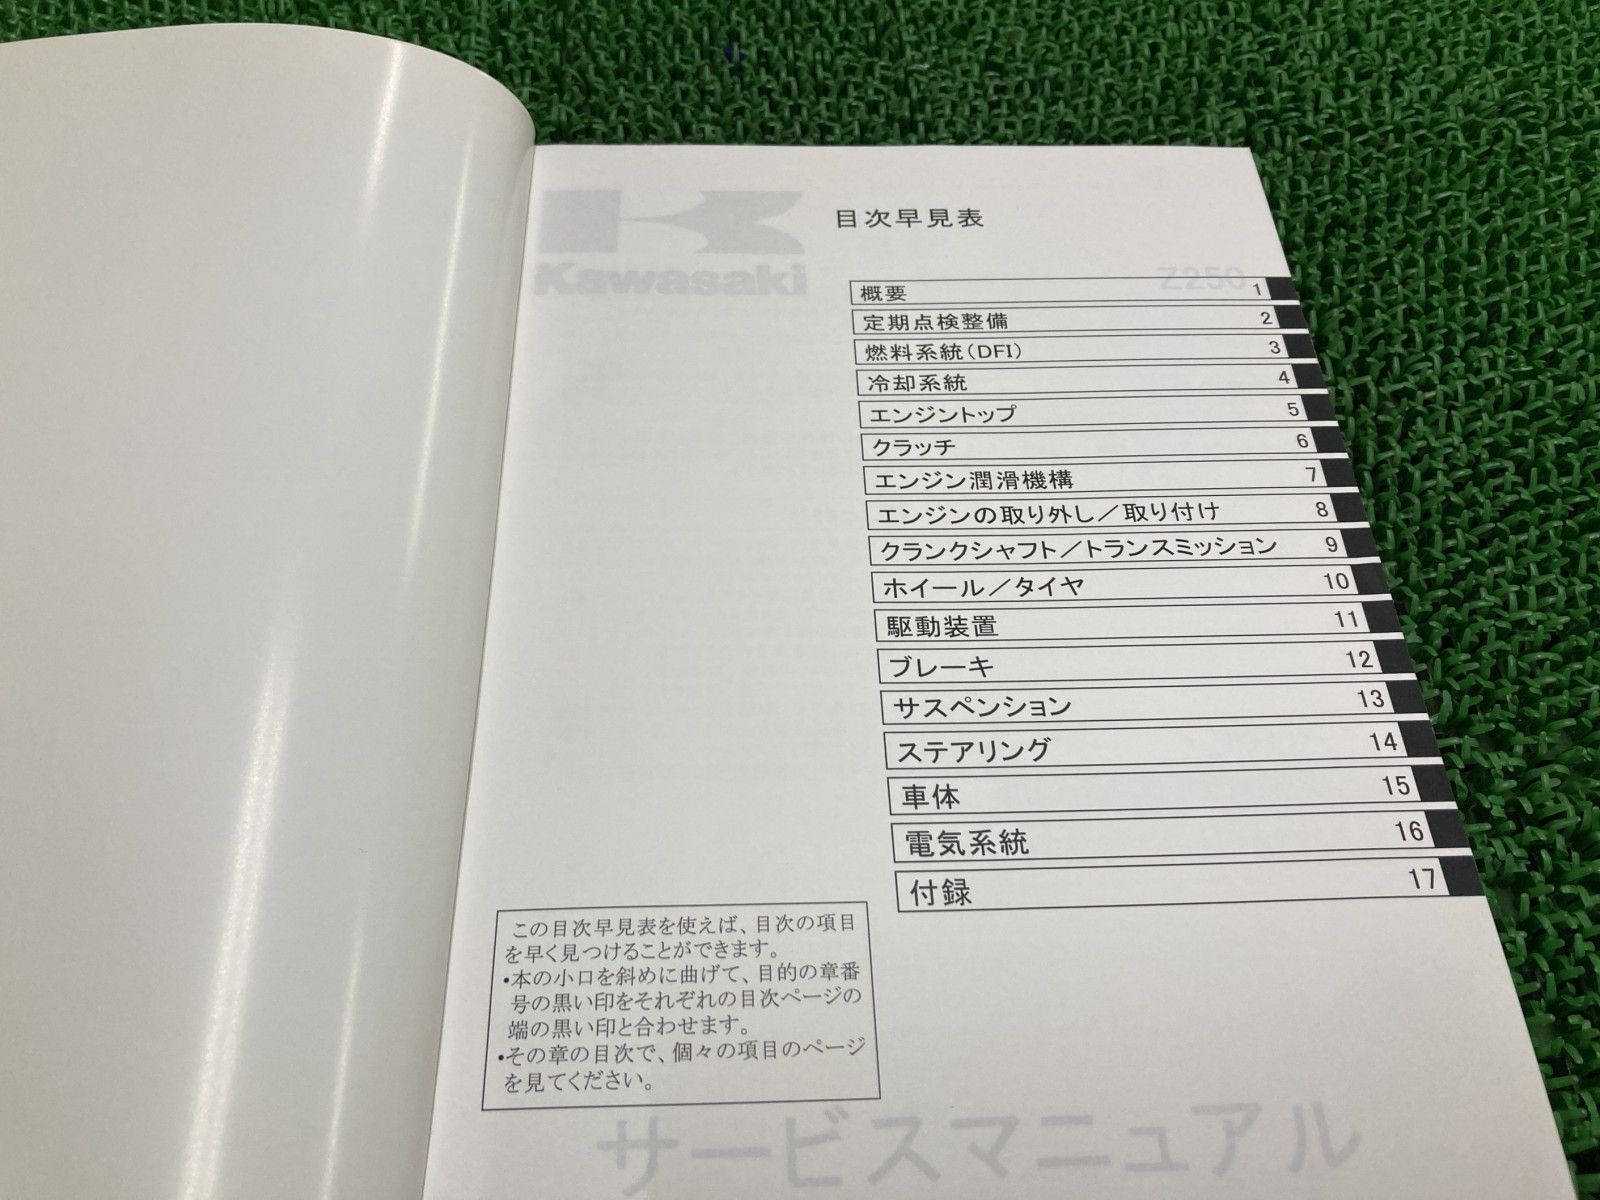 Kawasaki
目次早見表
Z250
概要 1
定期点検整備 2
燃料系統(DFI) 3
冷却系統 4
エンジントップ 5
クラッチ 6
エンジン潤滑機構 7
エンジンの取り外し／取り付け 8
クランクシャフト／トランスミッション 9
ホイール／タイヤ 10
駆動装置 11
ブレーキ 12
サスペンション 13
ステアリング 14
車体 15
電気系統 16
付録 17
この目次早見表を使えば、目次の項目
を早く見つけることができます。
•本の小口を斜めに曲げて、目的の章番
号の黒い印をそれぞれの目次ページの
端の黒い印と合わせます。
•その章の目次で、個々の項目のページ
を見てください。
サービスマニュアル